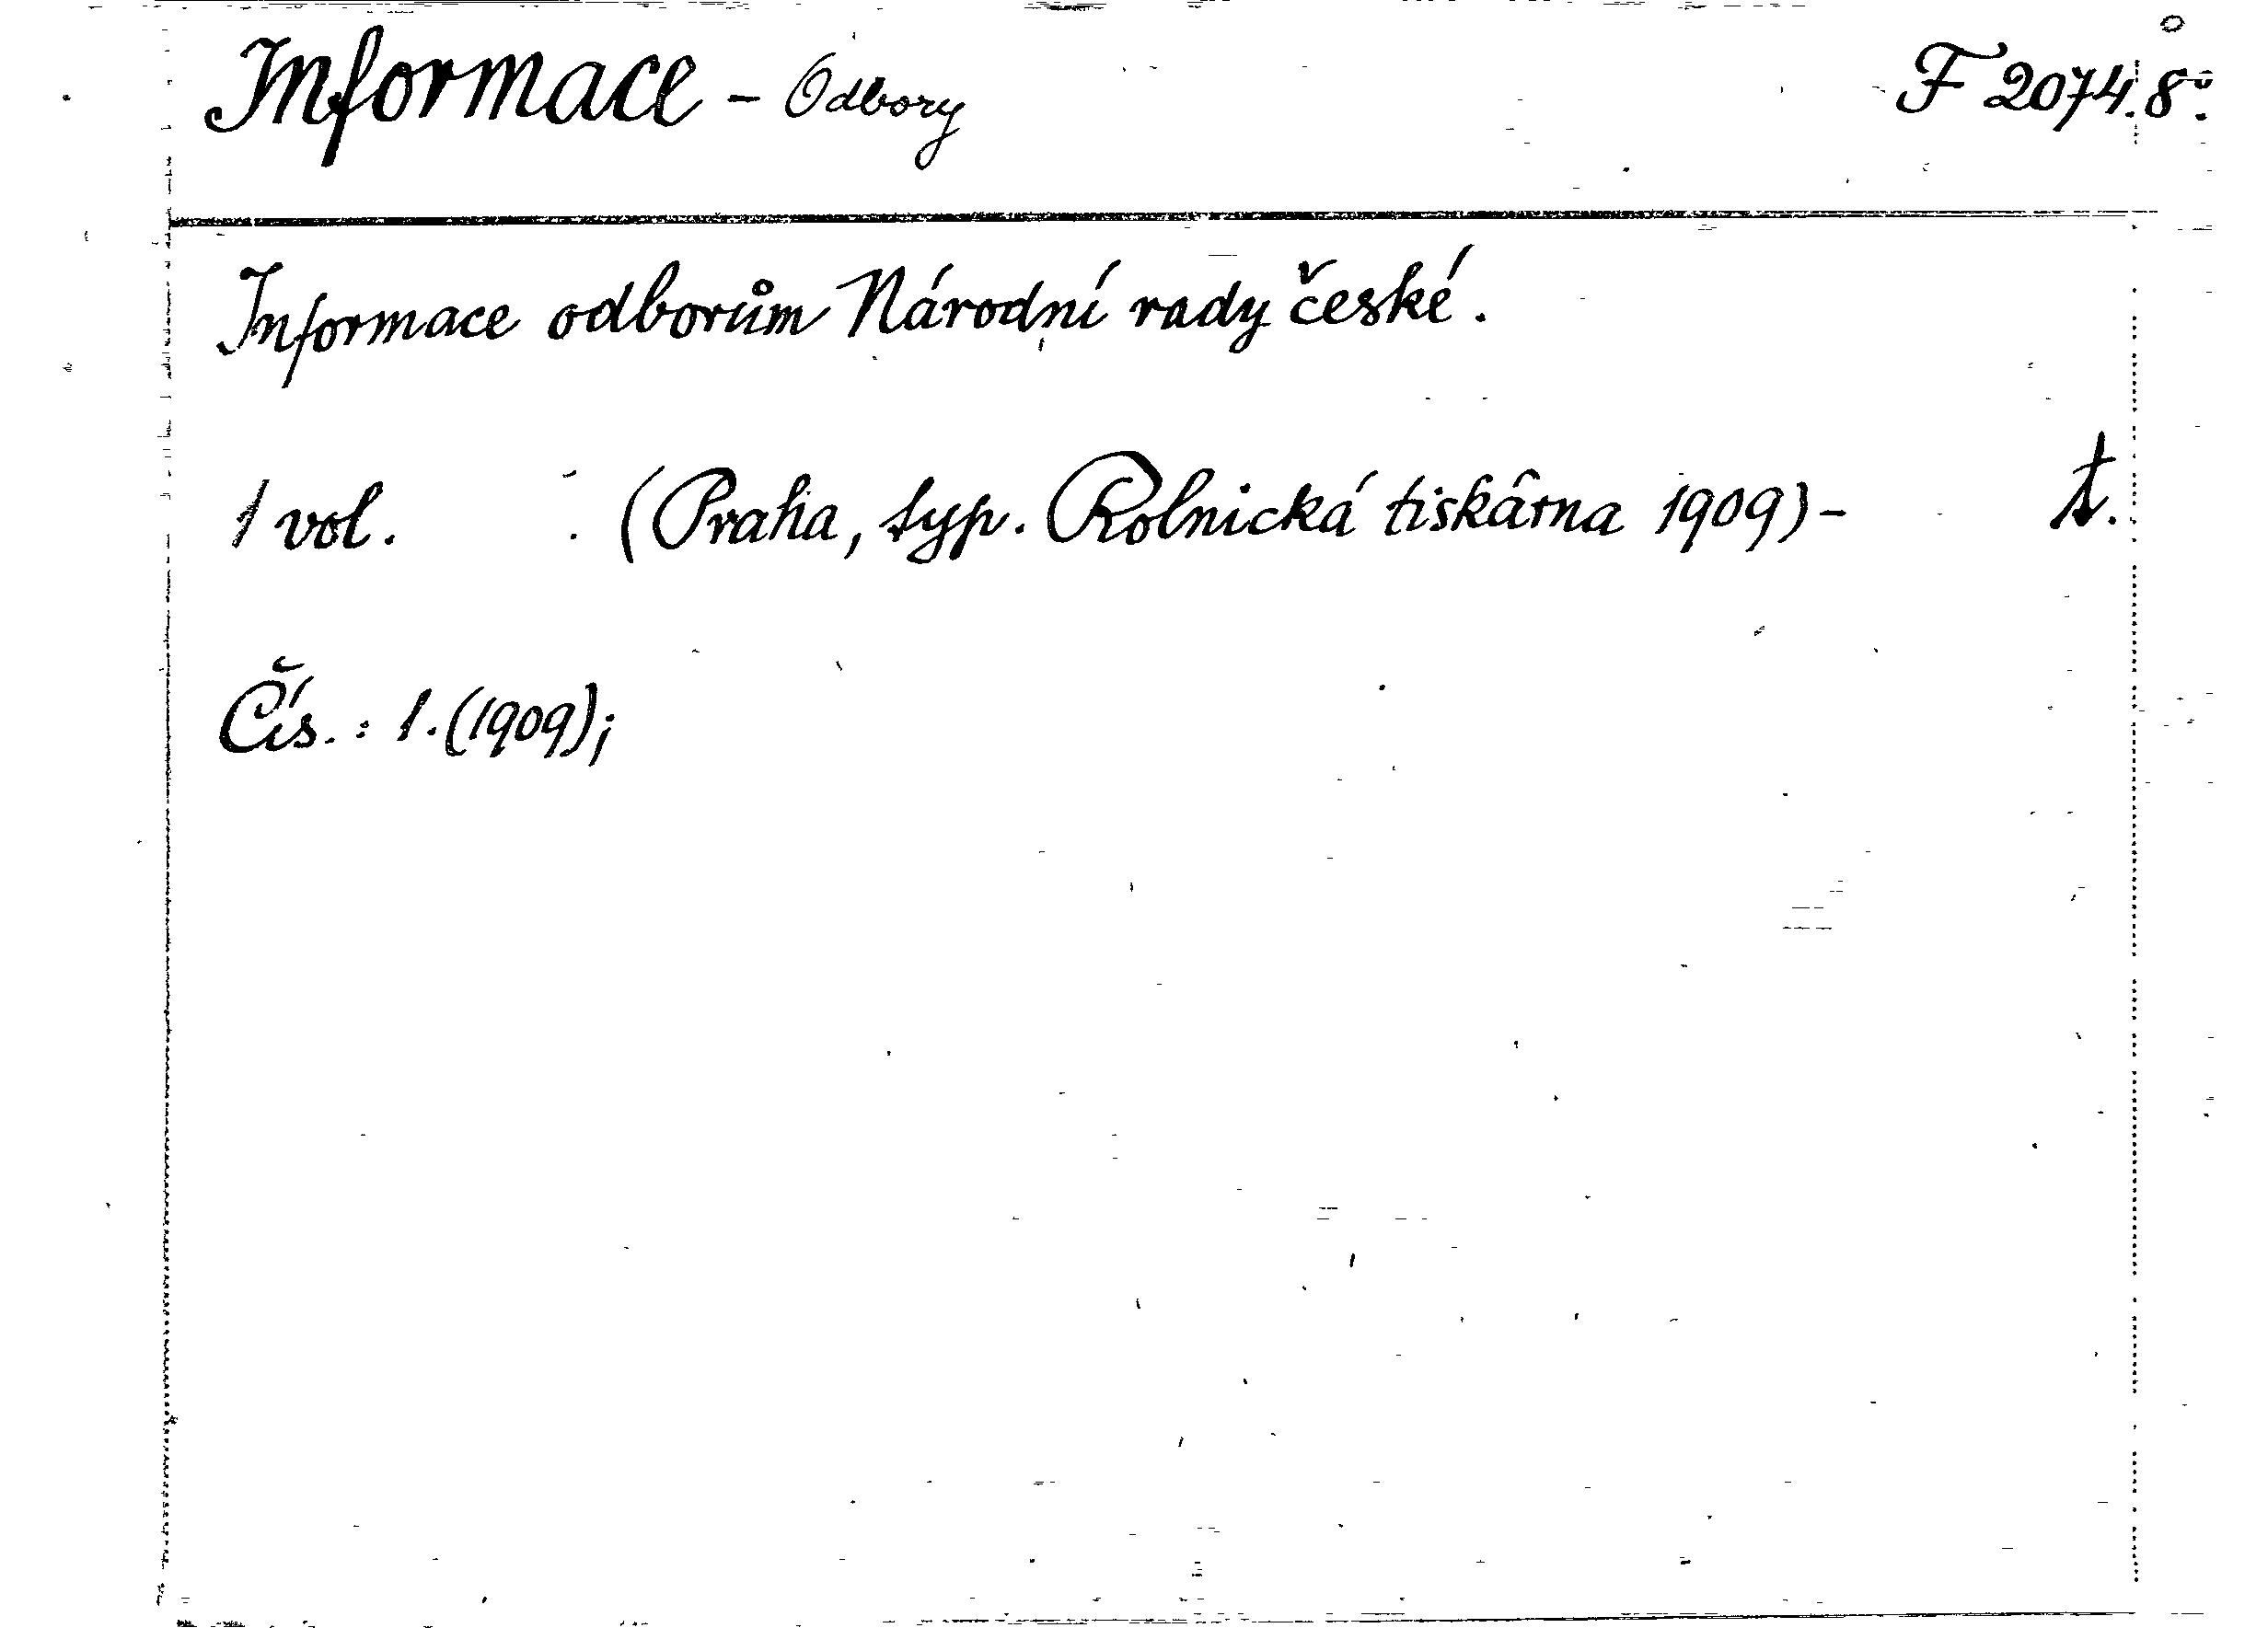 Informace - Odbory F 2074.8°.
Informace odborům Národní rady české.
1 vol. (Praha, typ. Rolnická tiskárna 1909)-
Čís.: 1.(1909);